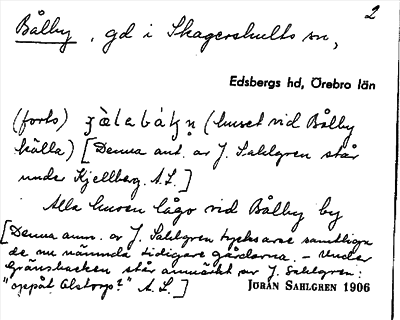 2
Bålby, gd i Skagershults sn,
Edsbergs hd, Örebro län
(forts) (huset vid Bålby
källa) [Denna ant. av J. Sahlgren står
under Kjellberg. A.L.]
Alla husen lågo vid Bålby by
[Denna anm. av J. Sahlgren tycks avse samtliga
de nu nämnda tidigare gårdarna. – Under
Gränsbacken står anmärkt av J. Sahlgren:
"oppåt Olstorp?" A.L.]
JÖRAN SAHLGREN 1906